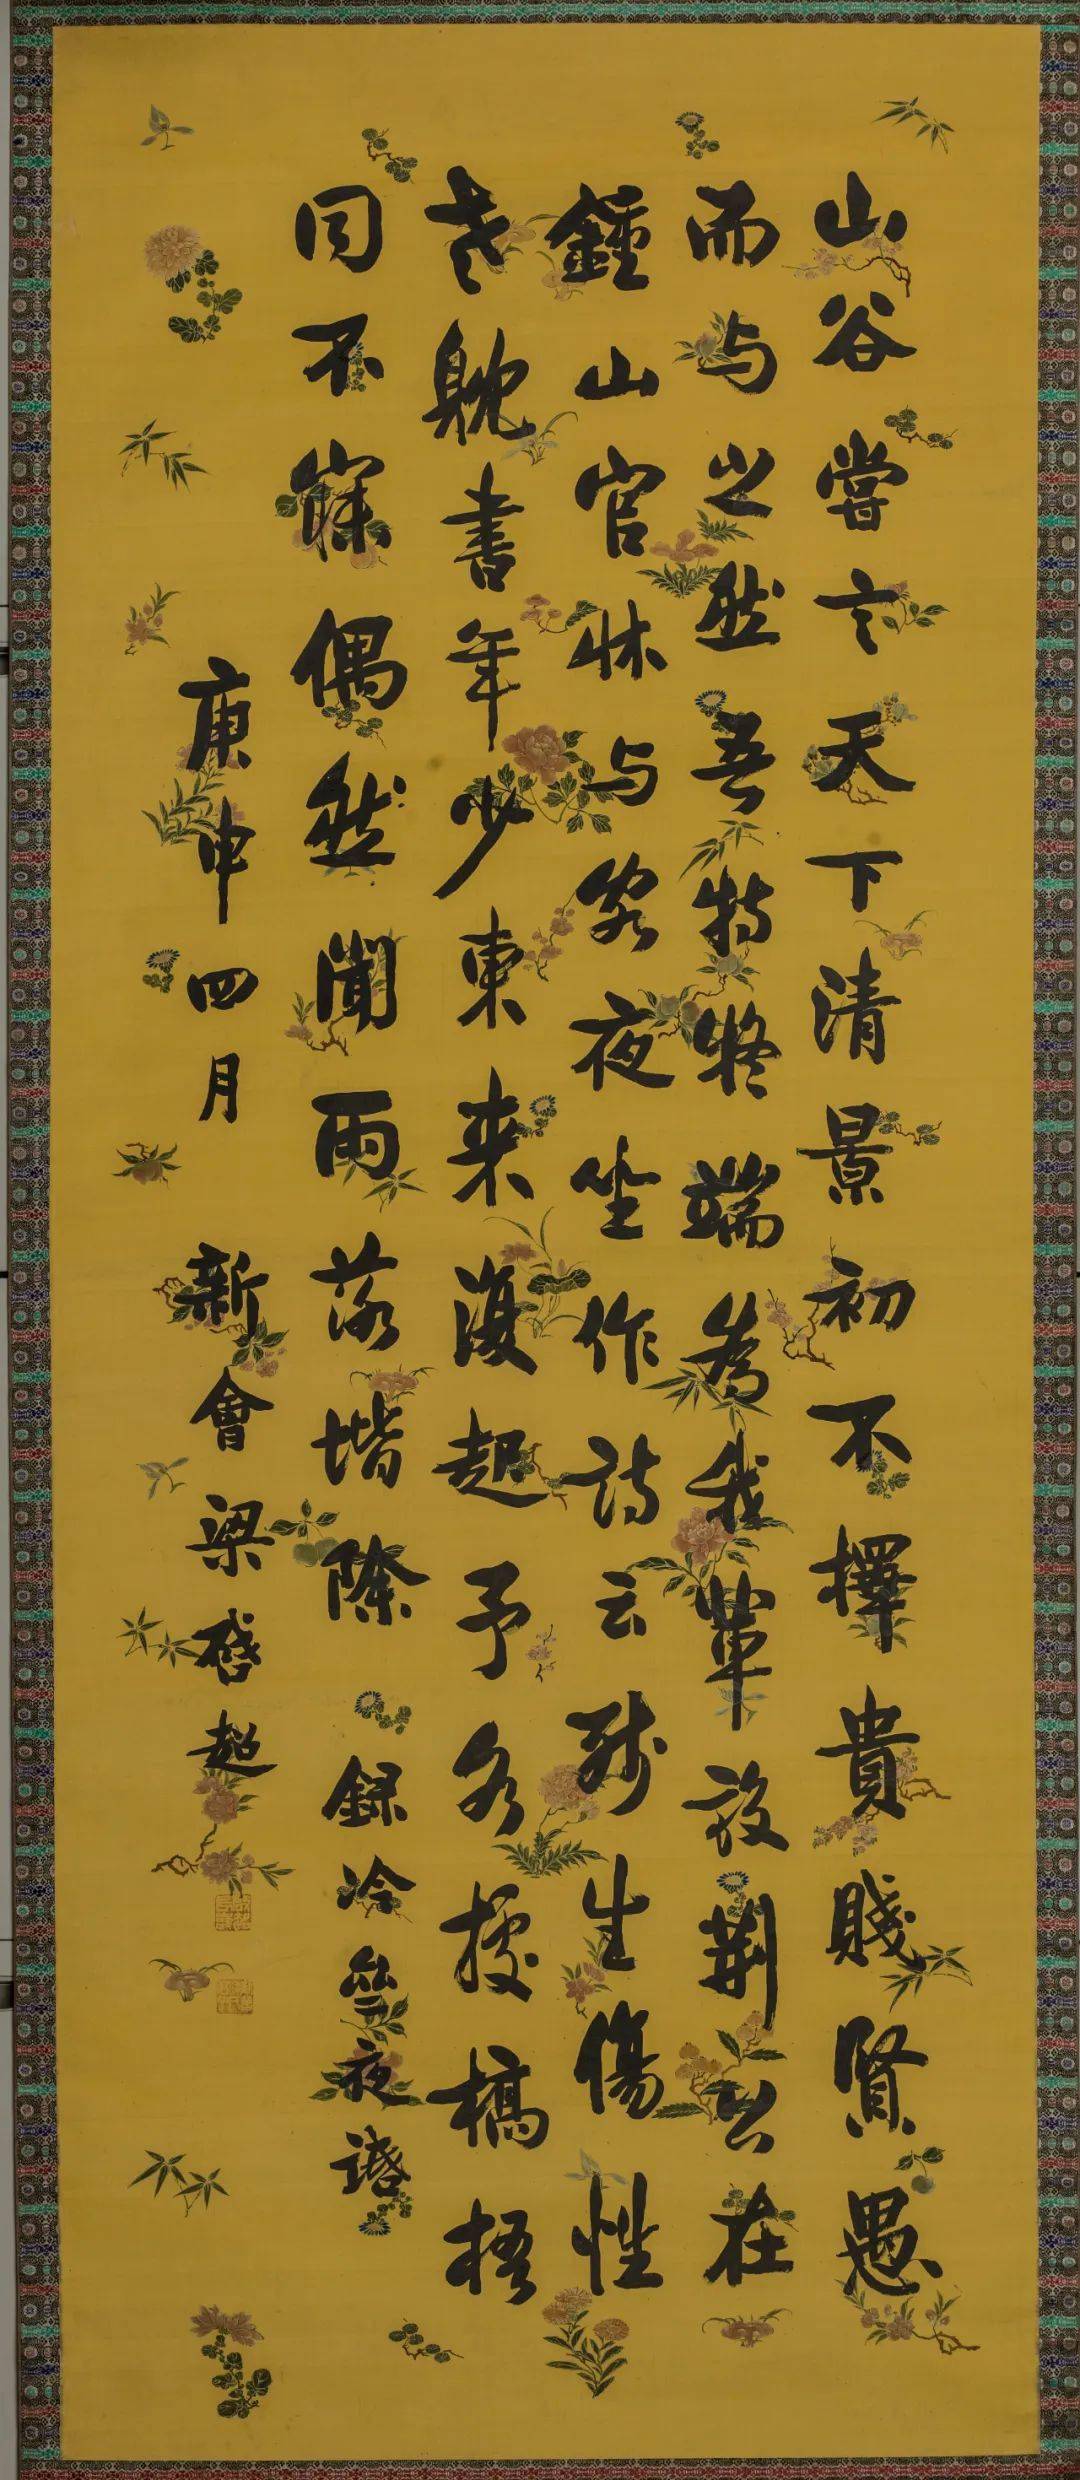 山谷嘗言天下清景初不擇貴賤賢愚
而与之然吾特疑端為我輩設荊公在
鍾山官牀与客夜坐作詩云殘生傷性
老躭書年少東來復起予各據槁梧
同不寐偶然聞雨落堦除 錄冷齋夜話
庚申四月 新會梁啓超